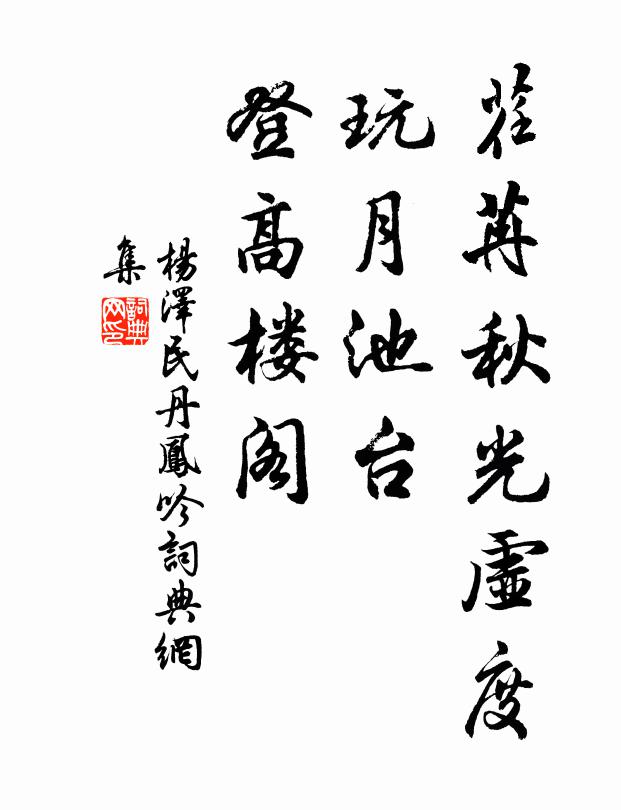 荏苒秋光虛度
玩月池台
登高楼阁
楊澤民丹鳳吟詞典網
集
詞典网印